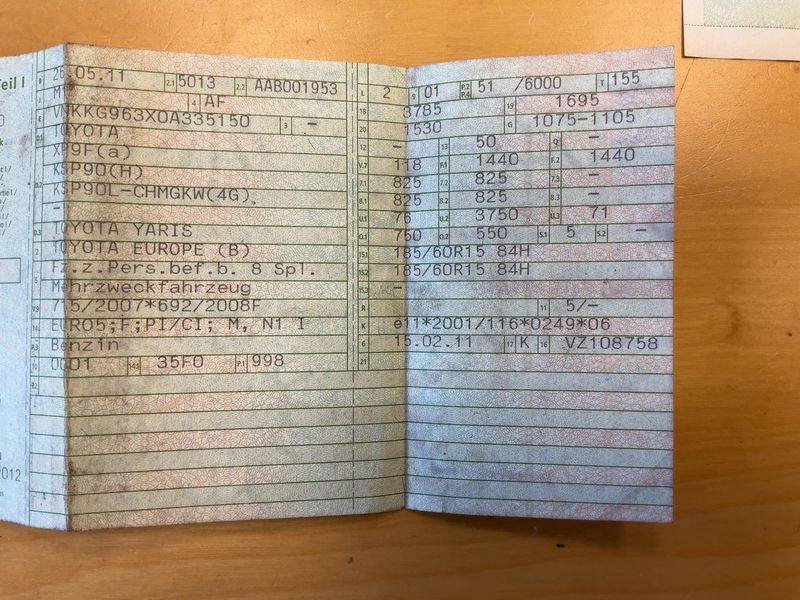 Teil I
B 26.05.11 2.1 5013 2.2 AAB001953
J M1 4 AF
E VNKKG963X0A335150 3 –
D.1 TOYOTA
XP9F(a)
D.2 KSP90(H)
KSP90L-CHMGKW(4G)
–
D.3 TOYOTA YARIS
2 TOYOTA EUROPE (B)
5 Fz.z.Pers.bef.b. 8 Spl.
Mehrzweckfahrzeug
V.9 715/2007*692/2008F
14 EURO5;F;PI/CI; M, N1 I
P.3 Benzin
10 0001 14.1 35F0 P.1 998
22
L 2 9 01 P.2 P.4 51 /6000 T 155
18 3785 19 1695
20 1530 G 1075-1105
12 – 13 50 Q –
V.7 118 F.1 1440 F.2 1440
7.1 825 7.2 825 7.3 –
8.1 825 8.2 825 8.3 –
U.1 76 U.2 3750 U.3 71
O.1 750 O.2 550 S.1 5 S.2 –
15.1 185/60R15 84H
15.2 185/60R15 84H
15.3 –
R 11 5/–
K e11*2001/116*0249*06
6 15.02.11 17 K 16 VZ108758
21
2012